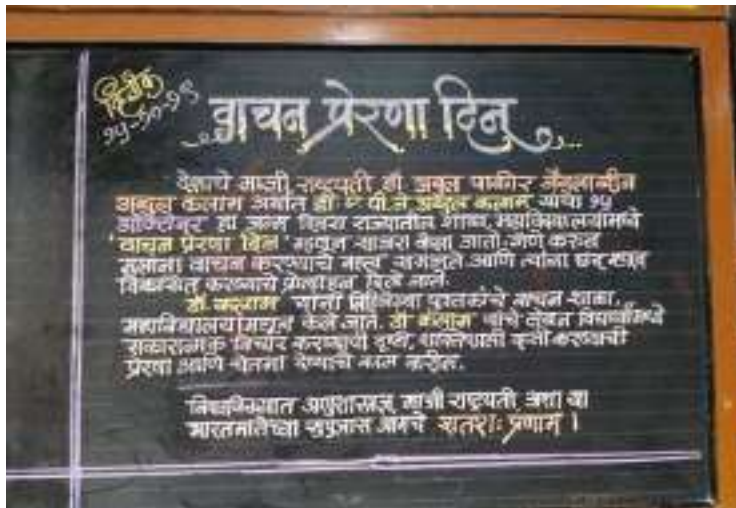 दिनांक
१५-१०-१९
वाचन प्रेरणा दिन
देशाचे माजी राष्ट्रपती डॉ अबुल पाकीर जैनुलाब्दीन
अब्दुल कलाम अर्थात डॉ ए पी जे अब्दुल कलाम यांचा १५
ऑक्टोंबर हा जन्म दिवस राज्यातील शाळा, महाविद्यालयामध्ये
'वाचन प्रेरणा दिन' म्हणून साजरा केला जातो.
मुलांना वाचन करण्याचे महत्व समजते आणि त्यांना छंद
विकसित करण्याचे प्रोत्साहन दिले जाते.
डॉ. कलाम यांनी लिहिलेल्या पुस्तकांचे वाचन शाळा,
महाविद्यालयांमधून केले जाते. डॉ कलाम यांचे लेखन विद्यार्थ्यांमध्ये
सकारात्मक विचार करण्याची दृष्टी, कृती करण्याची
प्रेरणा आणि चेतना देण्याचे काम करील.
अणुशास्त्रज्ञ, माजी राष्ट्रपती, अशा या
भारतमातेच्या सुपुत्रास आमचे शतशः प्रणाम ।